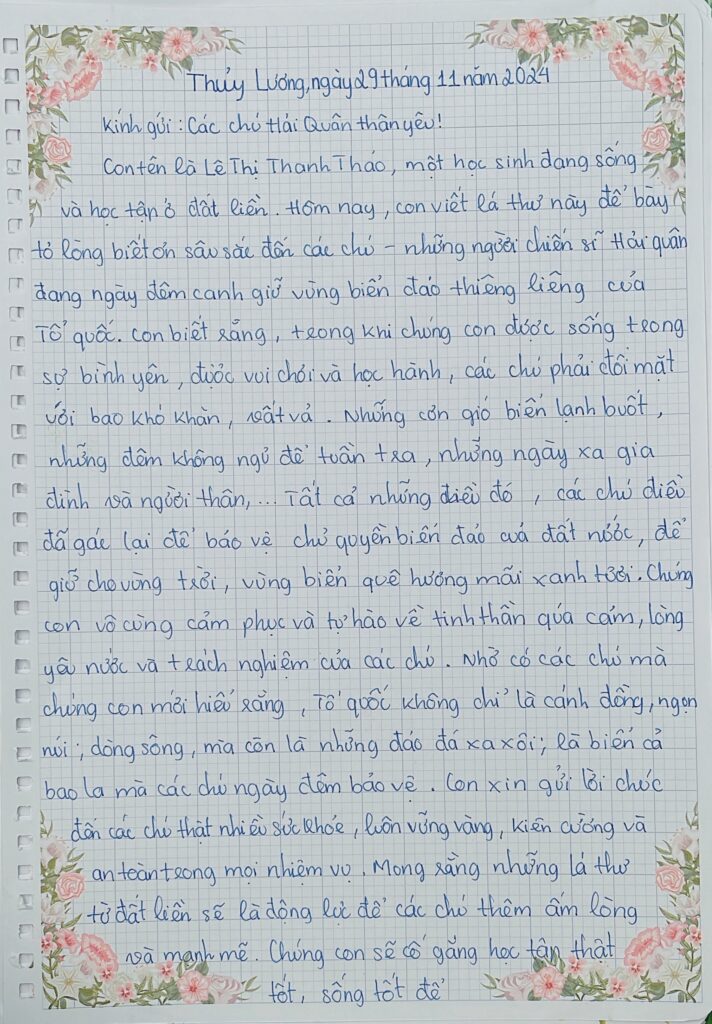 Thủy Lương, ngày 29 tháng 11 năm 2024
Kính gửi : Các chú Hải Quân thân yêu!
Con tên là Lê Thị Thanh Thảo, một học sinh đang sống
và học tập ở đất liền. Hôm nay, con viết lá thư này để bày
tỏ lòng biết ơn sâu sắc đến các chú - những người chiến sĩ Hải quân
đang ngày đêm canh giữ vùng biển đảo thiêng liêng của
Tổ quốc. Con biết rằng, trong khi chúng con được sống trong
sự bình yên, được vui chơi và học hành, các chú phải đối mặt
với bao khó khăn, vất vả. Những cơn gió biển lạnh buốt,
những đêm không ngủ để tuần tra, những ngày xa gia
đình và người thân,... Tất cả những điều đó, các chú điều
đã gác lại để bảo vệ chủ quyền biển đảo cuả đất nước, để
giữ cho vùng trời, vùng biển quê hương mãi xanh tươi. Chúng
con vô cùng cảm phục và tự hào về tinh thần qủa cảm, lòng
yêu nước và trách nghiệm của các chú. Nhờ có các chú mà
chúng con mới hiểu rằng, Tổ quốc không chỉ là cánh đồng, ngọn
núi ; dòng sông, mìa còn là những đảo đá xa xôi; là biển cả
bao la mà các chú ngày đêm bảo vệ. Con xin gửi lời chúc
đến các chú thật nhiều sức khỏe, luôn vững vàng, kiên cường và
an toàn trong mọi nhiệm vụ. Mong rằng những lá thư
từ đất liền sẽ là động lực để các chú thêm ấm lòng
và mạnh mẽ. Chúng con sẽ cố gắng học tập thật
tốt, sống tốt để